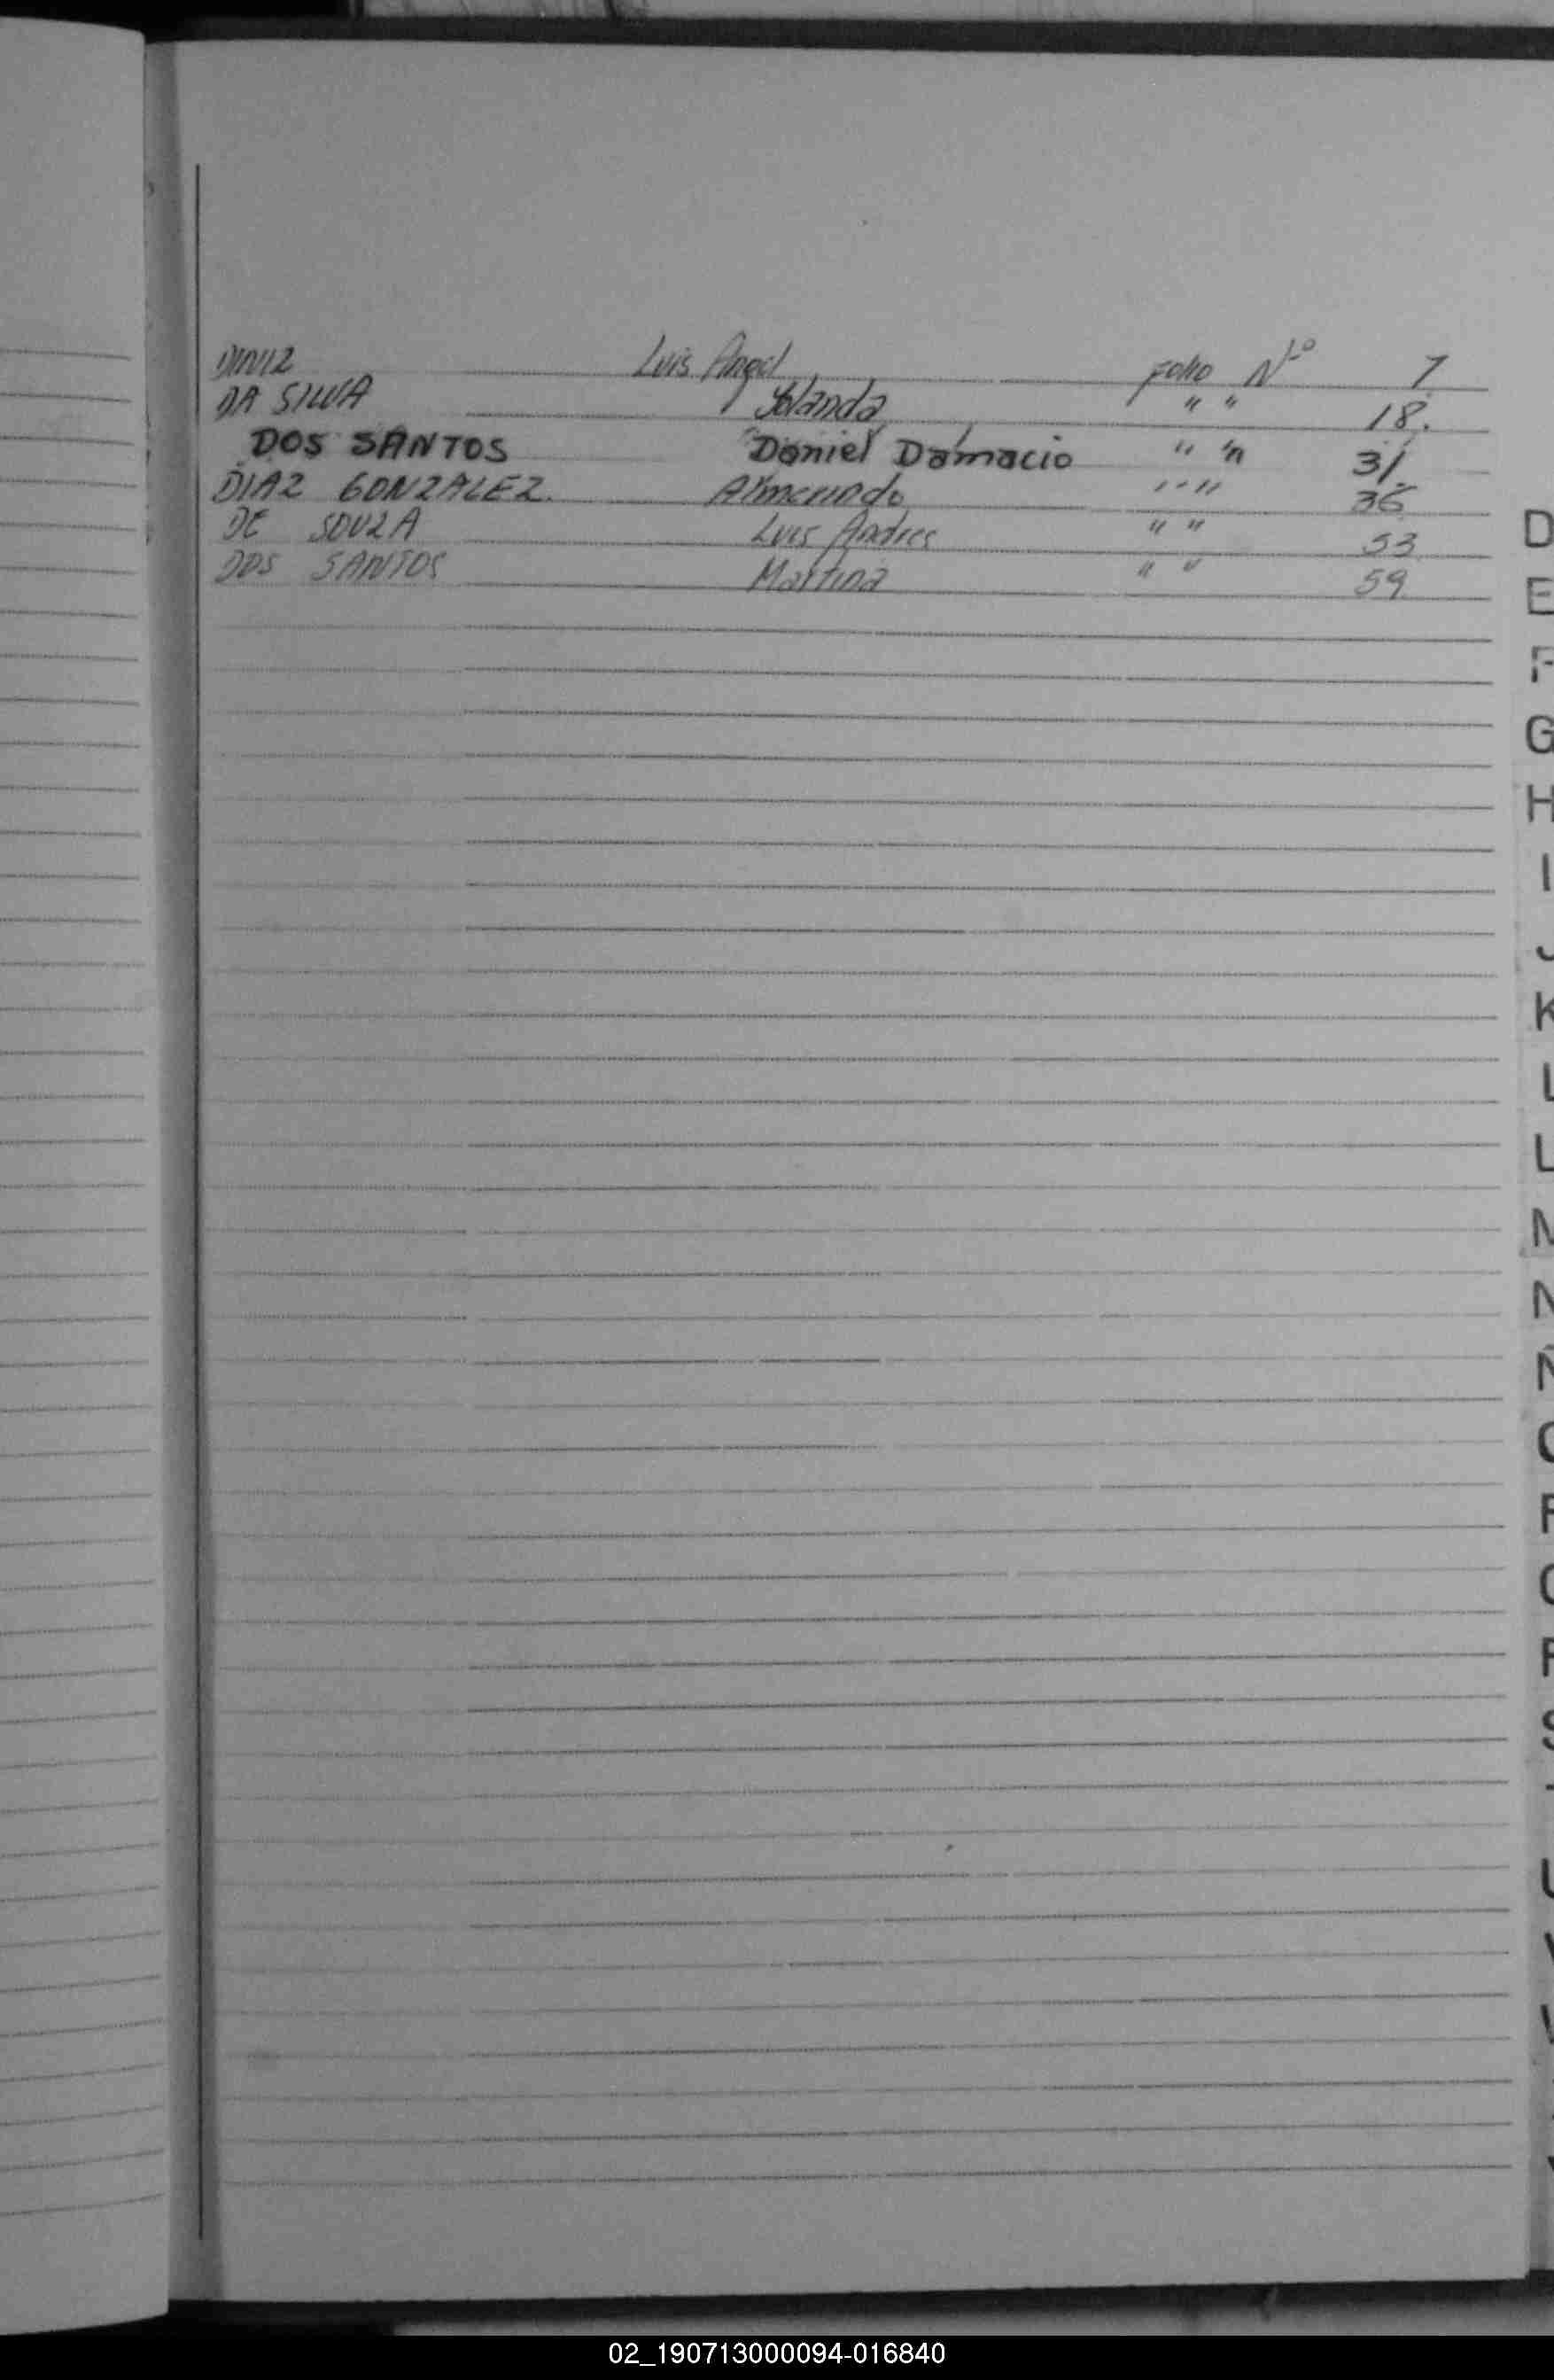 DINIZ Luis Angel Folio Nº 7
DA SILVA Yolanda " " 18.
DOS SANTOS Daniel Damacio " " 31
DIAZ GONZALEZ. Almerindo " " 36
DE SOUZA Luis Andres " " 53
DOS SANTOS Martina " " 59
D
E
F
G
H
I
J
K
L
L
M
N
Ñ
O
P
Q
R
S
T
U
V
02_190713000094-016840